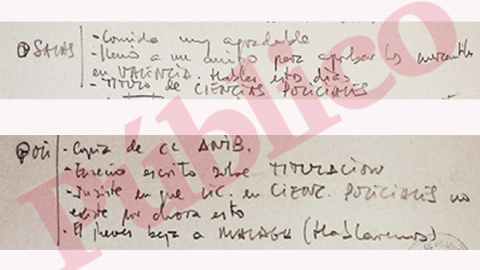 SALAS
- Comida muy agradable
- a un amigo para aprobar los
en VALENCIA. Hablar esto días
- TITULO de CIENCIAS POLICIALES
- Copia de CC ANIB.
- escrito sobre TITULACION
- Insiste en que LIC. en CIENC. POLICIALES no
existe por ahora esto
- El jueves baja a MALAGA (Hablaremos)
Público